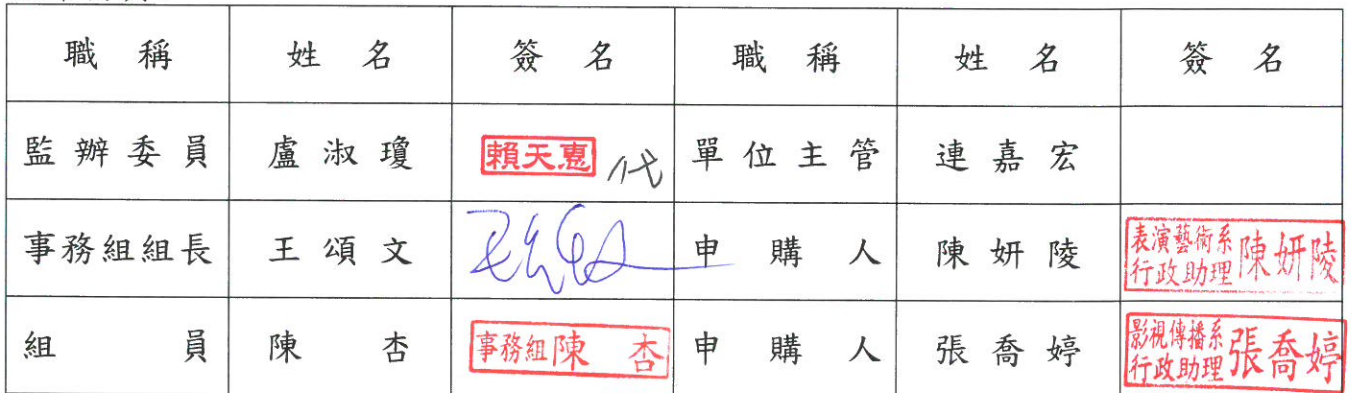 職稱 姓名 簽名 職稱 姓名 簽名
監辦委員 盧淑瓊 賴天惠 代 單位主管 連嘉宏
事務組組長 王頌文 申購人 陳妍陵 表演藝術系 行政助理 陳妍陵
組員 陳杏 事務組 陳杏 申購人 張喬婷 影視傳播系 行政助理 張喬婷